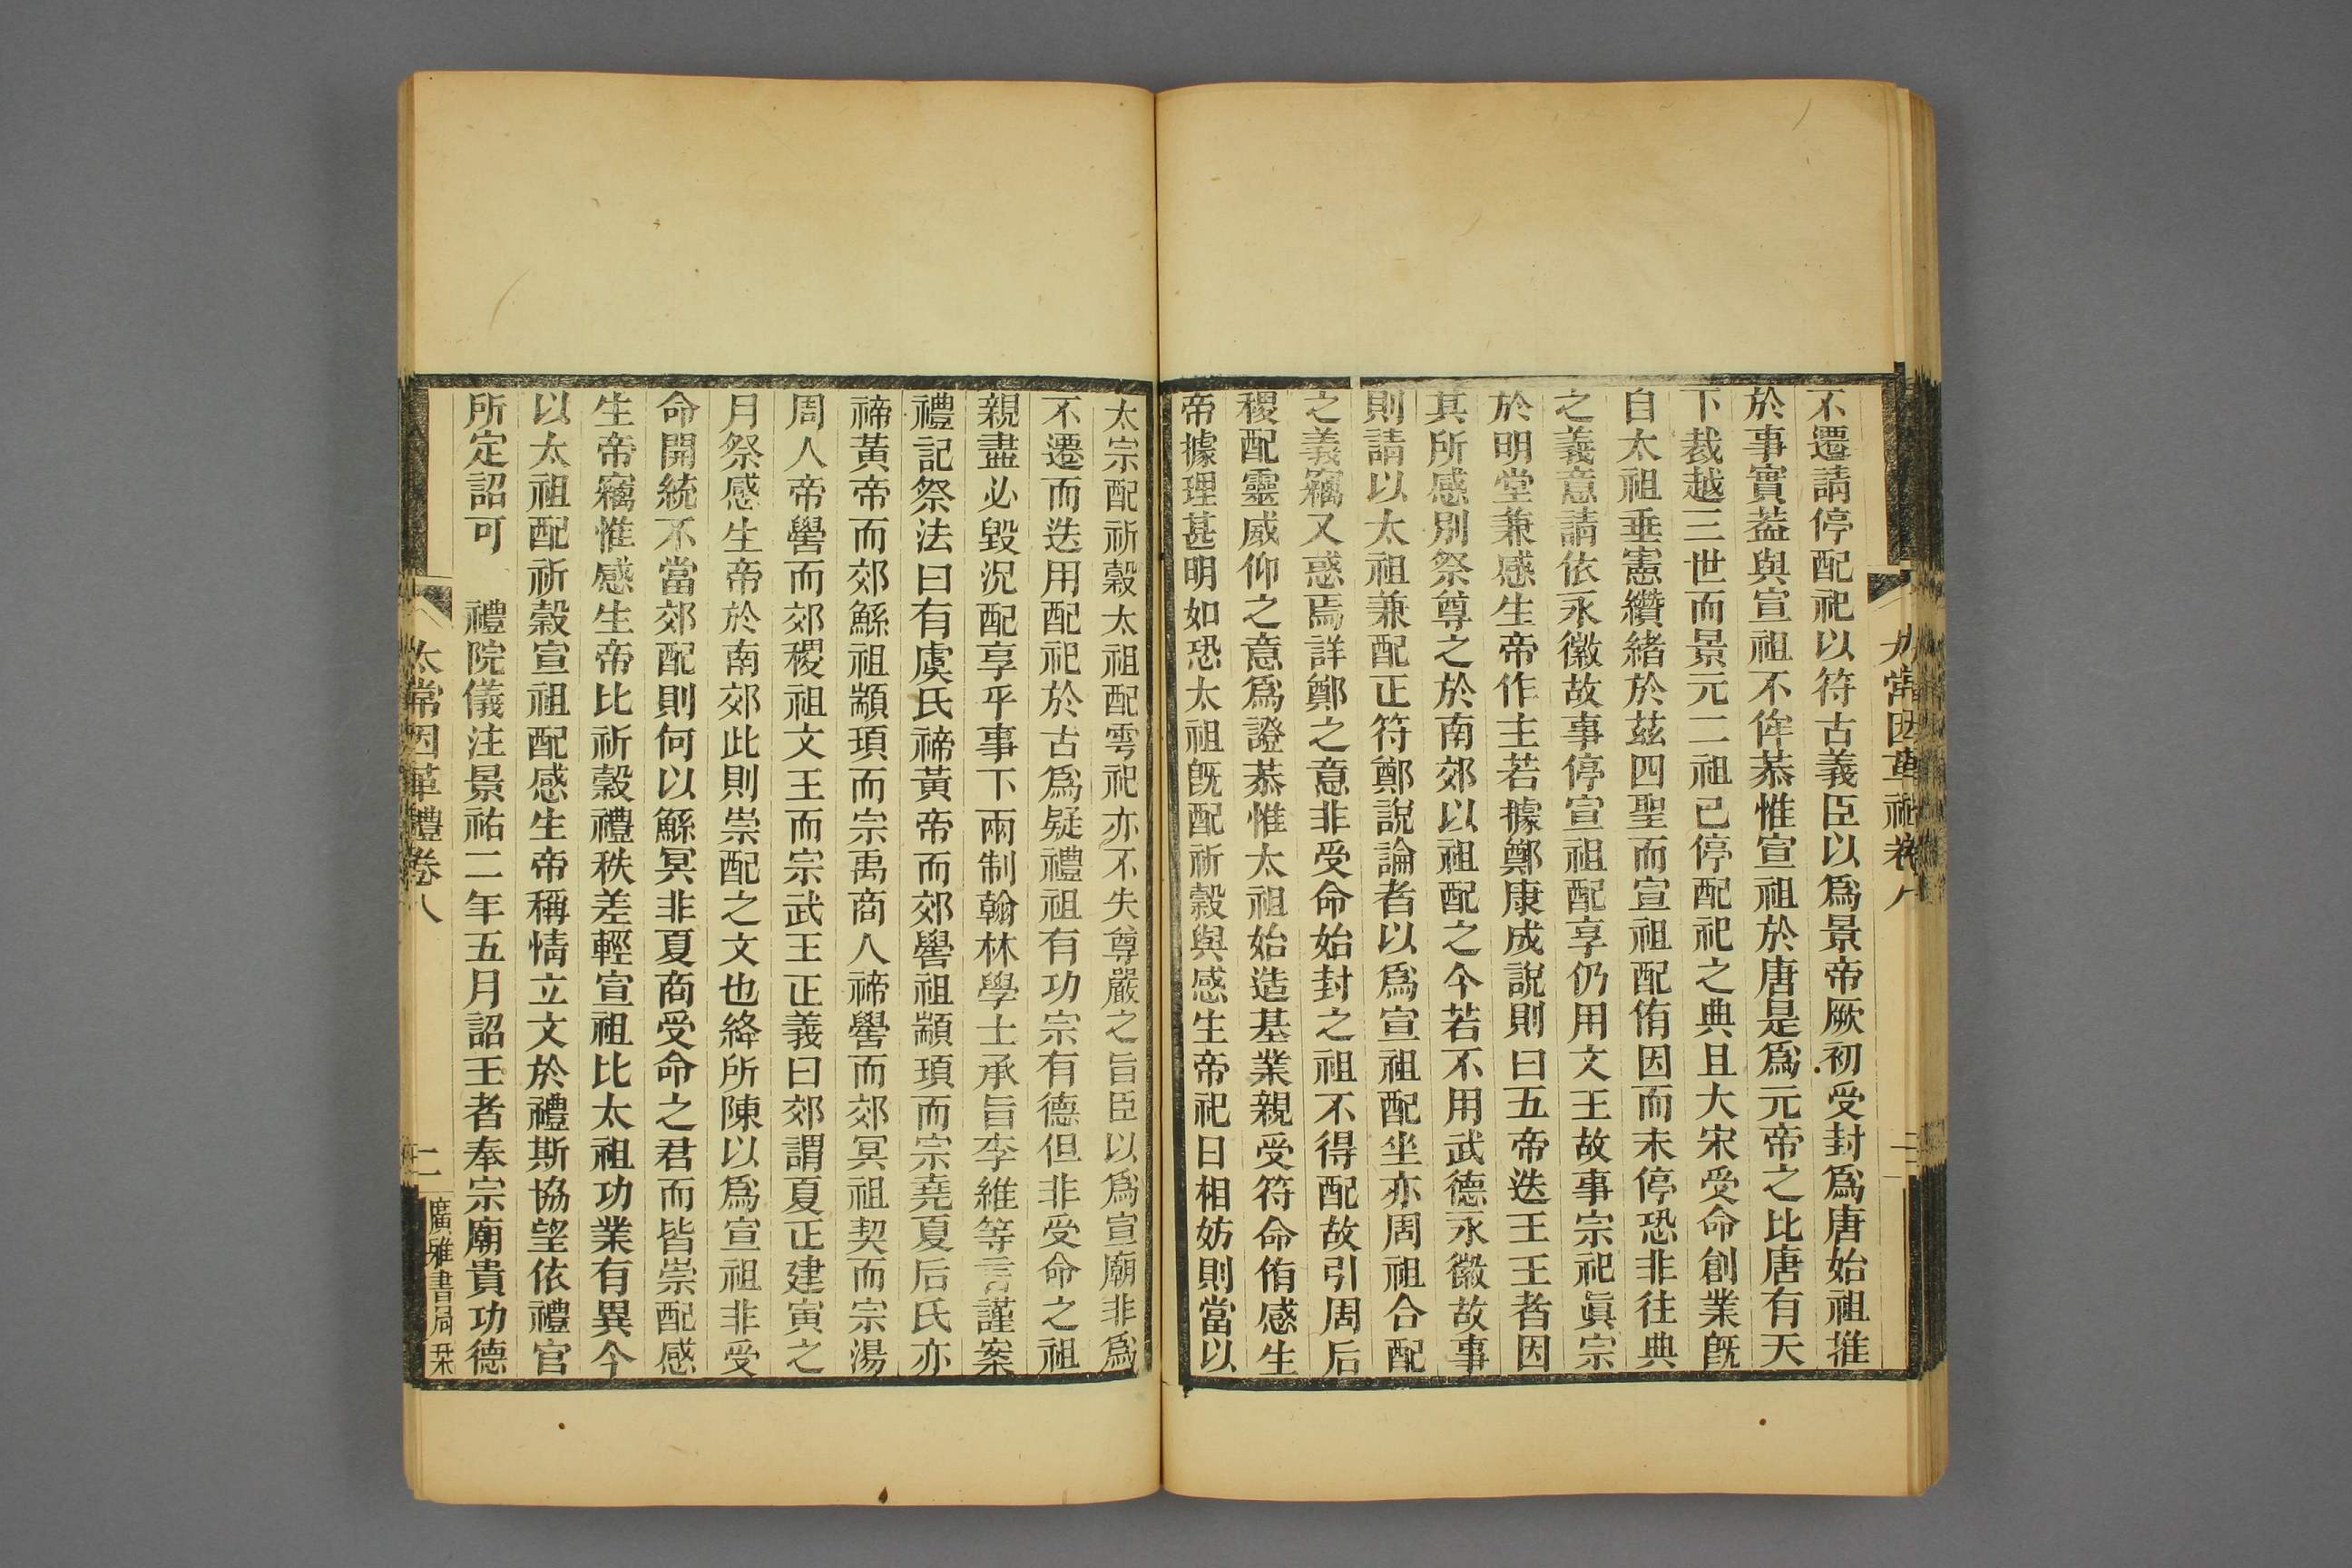 不遷請停配祀以符古義臣以爲景帝厥初受封爲唐始祖推
於事實葢與宣祖不侔恭惟宣祖於唐是爲元帝之比唐有天
下裁越三世而景元二祖已停配祀之典且大宋受命創業旣
自太祖垂憲纘緒於茲四聖而宣祖配侑因而未停恐非往典
之義意請依永徽故事停宣祖配享仍用文王故事宗祀眞宗
於明堂兼感生帝作主若據鄭康成說則曰五帝迭王王者因
其所感別祭尊之於南郊以祖配之今若不用武德永徽故事
則請以太祖兼配正符鄭說論者以爲宣祖配坐亦周祖合配
之義竊又惑焉詳鄭之意非受命始封之祖不得配故引周后
稷配靈威仰之意爲證恭惟太祖始造基業親受符命侑感生
帝據理甚明如恐太祖旣配祈穀與感生帝祀日相妨則當以
太宗配祈穀太祖配雩祀亦不失尊嚴之旨臣以爲宣廟非爲
不遷而迭用配祀於古爲疑禮祖有功宗有德但非受命之祖
親盡必毀況配享乎事下兩制翰林學士承旨李維等言謹案
禮記祭法曰有虞氏禘黃帝而郊嚳祖顓頊而宗堯夏后氏亦
禘黃帝而郊鯀祖顓頊而宗禹商人禘嚳而郊冥祖契而宗湯
周人帝嚳而郊稷祖文王而宗武王正義曰郊謂夏正建寅之
月祭感生帝於南郊此則崇配之文也絳所陳以爲宣祖非受
命開統不當郊配則何以鯀冥非夏商受命之君而皆崇配感
生帝竊惟感生帝比祈穀禮秩差輕宣祖比太祖功業有異今
以太祖配祈穀宣祖配感生帝稱情立文於禮斯協望依禮官
所定詔可　禮院儀注景祐二年五月詔王者奉宗廟貴功德
太常因革禮卷八
二
廣雅書局栞